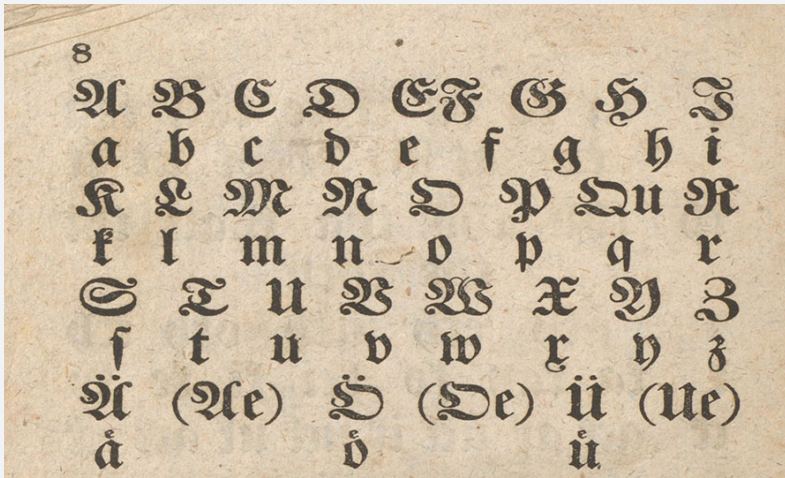 8
A B C D E F G H I
a b c d e f g h i
K L M N O P Qu R
k l m n o p q r
S T U V W X Y Z
ſ t u v w x y z
Ä (Ae) Ö (Oe) Ü (Ue)
aͤ oͤ uͤ